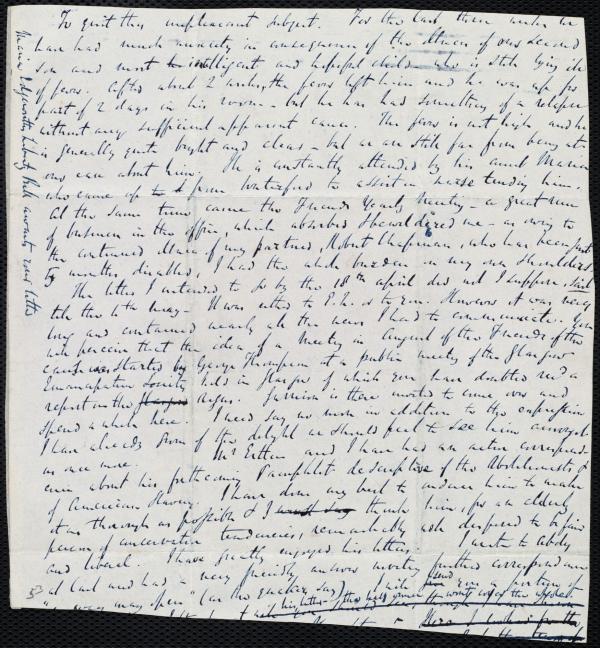 To quit this unpleasant subject. For the last three weeks we
have had much anxiety in consequence of the illness of our second
son and most intelligent and hopeful child who is still lying ill
of fever. After about 2 weeks the fever left him and he was up for
part of 2 days in his room - but he has had something of a relapse
without any sufficient apparent cause. The fever is not high and he
is generally quite bright and clear - but we are still far from being at
our ease about him. He is constantly attended by his aunt Maria
who came up from Waterford to assist in nurse tending him.
At the same time came the Friends Yearly Meeting - a great run
of business in the office, which absorbed & bewildered me - as owing to
the continued illness of my partner, Robert Chapman, who has been just
5 months disabled, I had the whole burden on my own shoulders.
The letter I intended to go by the 18th April did not I suppose, sail
till the 4th May - It was either to E.Q. or to you. However it was very
long and contained nearly all the news I had to communicate. You
will perceive that the idea of a Meeting in August of the Friends of the
cause was started by George Thompson at a public meeting of the Glasgow
Emancipation Society held in Glasgow of which you have doubtless rec'd a
report in the Argus. Garrison is there invited to come over and
spend a while here. I need say no more in addition to the expression
I have already given of the delight we should feel to see him amongst
us once more. Mr Estlin and I have had an active correspond-
ence about his forthcoming Pamphlet descriptive of the Abolitionists &
of American Slavery. I have done my best to induce him to make
it as thorough as possible & I think him, for an elderly
person of conservative tendencies, remarkably well disposed to be fair
and liberal. I have greatly enjoyed his letters. I wrote to Abby
at last and had a very friendly answer inviting further correspondence
"a way may open" (as the quakers say) I will send you a portion of
Maria Edgeworth, Lit